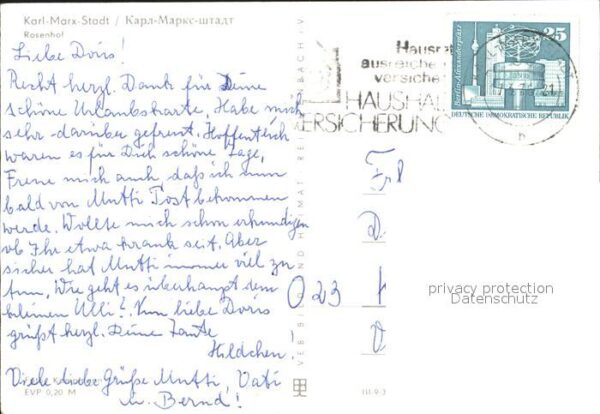 Karl-Marx-Stadt / Карл-Маркс-штадт
Rosenhof
Liebe Doris!
Recht herzl. Dank für Deine
schöne Urlaubskarte, Habe mich
sehr darüber gefreut. Hoffentlich
waren es für Dich schöne Tage,
Freue mich auch, daß ich nun
bald von Mutti Post bekommen
werde. Wollte mich schon erkundigen
ob Ihr etwa krank seit. Aber
sicher hat Mutti immer viel zu
tun, Wie geht es überhaupt dem
kleinen Ulli? Nun liebe Doris
grüßt herzl. Deine Tante
Hildchen!
Viele liebe Grüße Mutti, Vati
u. Bernd!
EVP 0,20 M
VEB BILD UND HEIMAT REICHENBACH i. V.
III-9-3
Hausra
ausreiche
versiche
HAUSHAL
ERSICHERUNG
Berlin-Alexanderplatz
25
DEUTSCHE DEMOKRATISCHE REPUBLIK
D.
023
privacy protection
Datenschutz